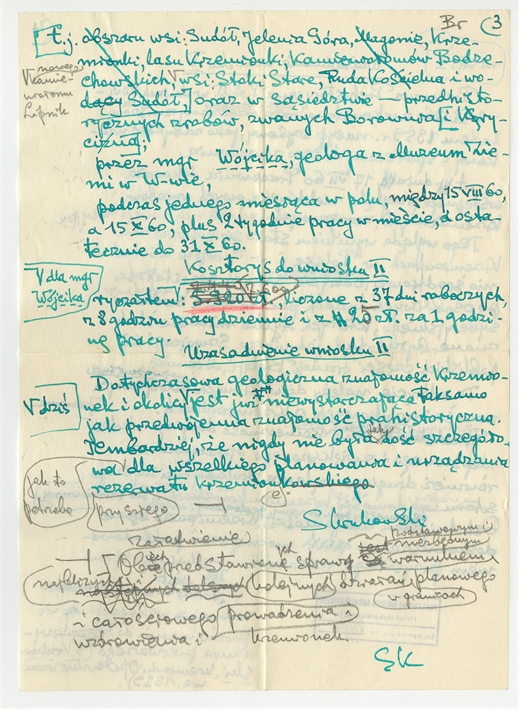 Br 3
[t.j. obszaru wsi: Sudół, Jelenia Góra, Magonie, Krze-
mionki, lasu Krzemionki, Kamieniołomów Bodze-
chowskich, wsi: Stoki Stare, Ruda Kościelna i wo-
nowego
V kamie-
niołomu
Lipnik
dącej Sudół,] oraz w sąsiedztwie — przedhisto-
rycznych zrobów, zwanych Borownia [i Kory-
cizna];
przez mgr Wójcika, geologa z Muzeum Zie-
mi w W-wie,
podczas jednego miesiąca w polu, między 15 VIII 60,
a 15 X 60, plus 2 tygodnie pracy w mieście, dosta-
tecznie do 31 X 60.
Kosztorys do wniosku II
V dla mgr
Wójcika
ryczałtem: zł, liczone z 37 dni roboczych,
z 8 godzin pracy dziennie i z zł. za 1 godzi-
nę pracy.
Uzasadnienie wniosku II
V dziś
Dotychczasowa geologiczna znajomość Krzemio-
nek i okolicy jest już niewystarczająca tak samo
jak przedwojenna znajomość prahistoryczna.
Tembardziej, że nigdy nie była dość szczegóło-
wa dla wszelkiego planowania i urządzania
rezerwatu krzemionkowskiego.
jak to
potrzeba
przyszłego
S Krukowski
Zasadnienie
podstawowym i
niezbędnym
Ob przedstawienie sprawy warunkiem
kolejnych otwarań planowego
w granicach
całościowego prowadzenia i
i krzemionek.
SK